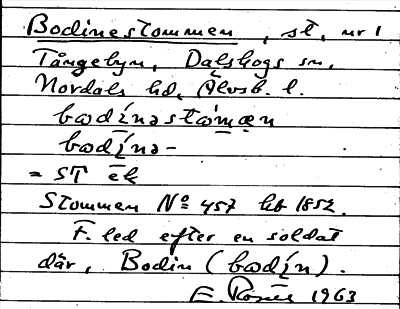 Bodinestommen, st, nr 1
Tångebyn, Dalskogs sn,
Nordals hd, Älvsb. l.
bωdinəstωmæn
bωdinə-
= ST ek
Stommen No 457 hfb 1852.
F. led efter en soldat
där, Bodin (bωdin).
E. Rosén 1963